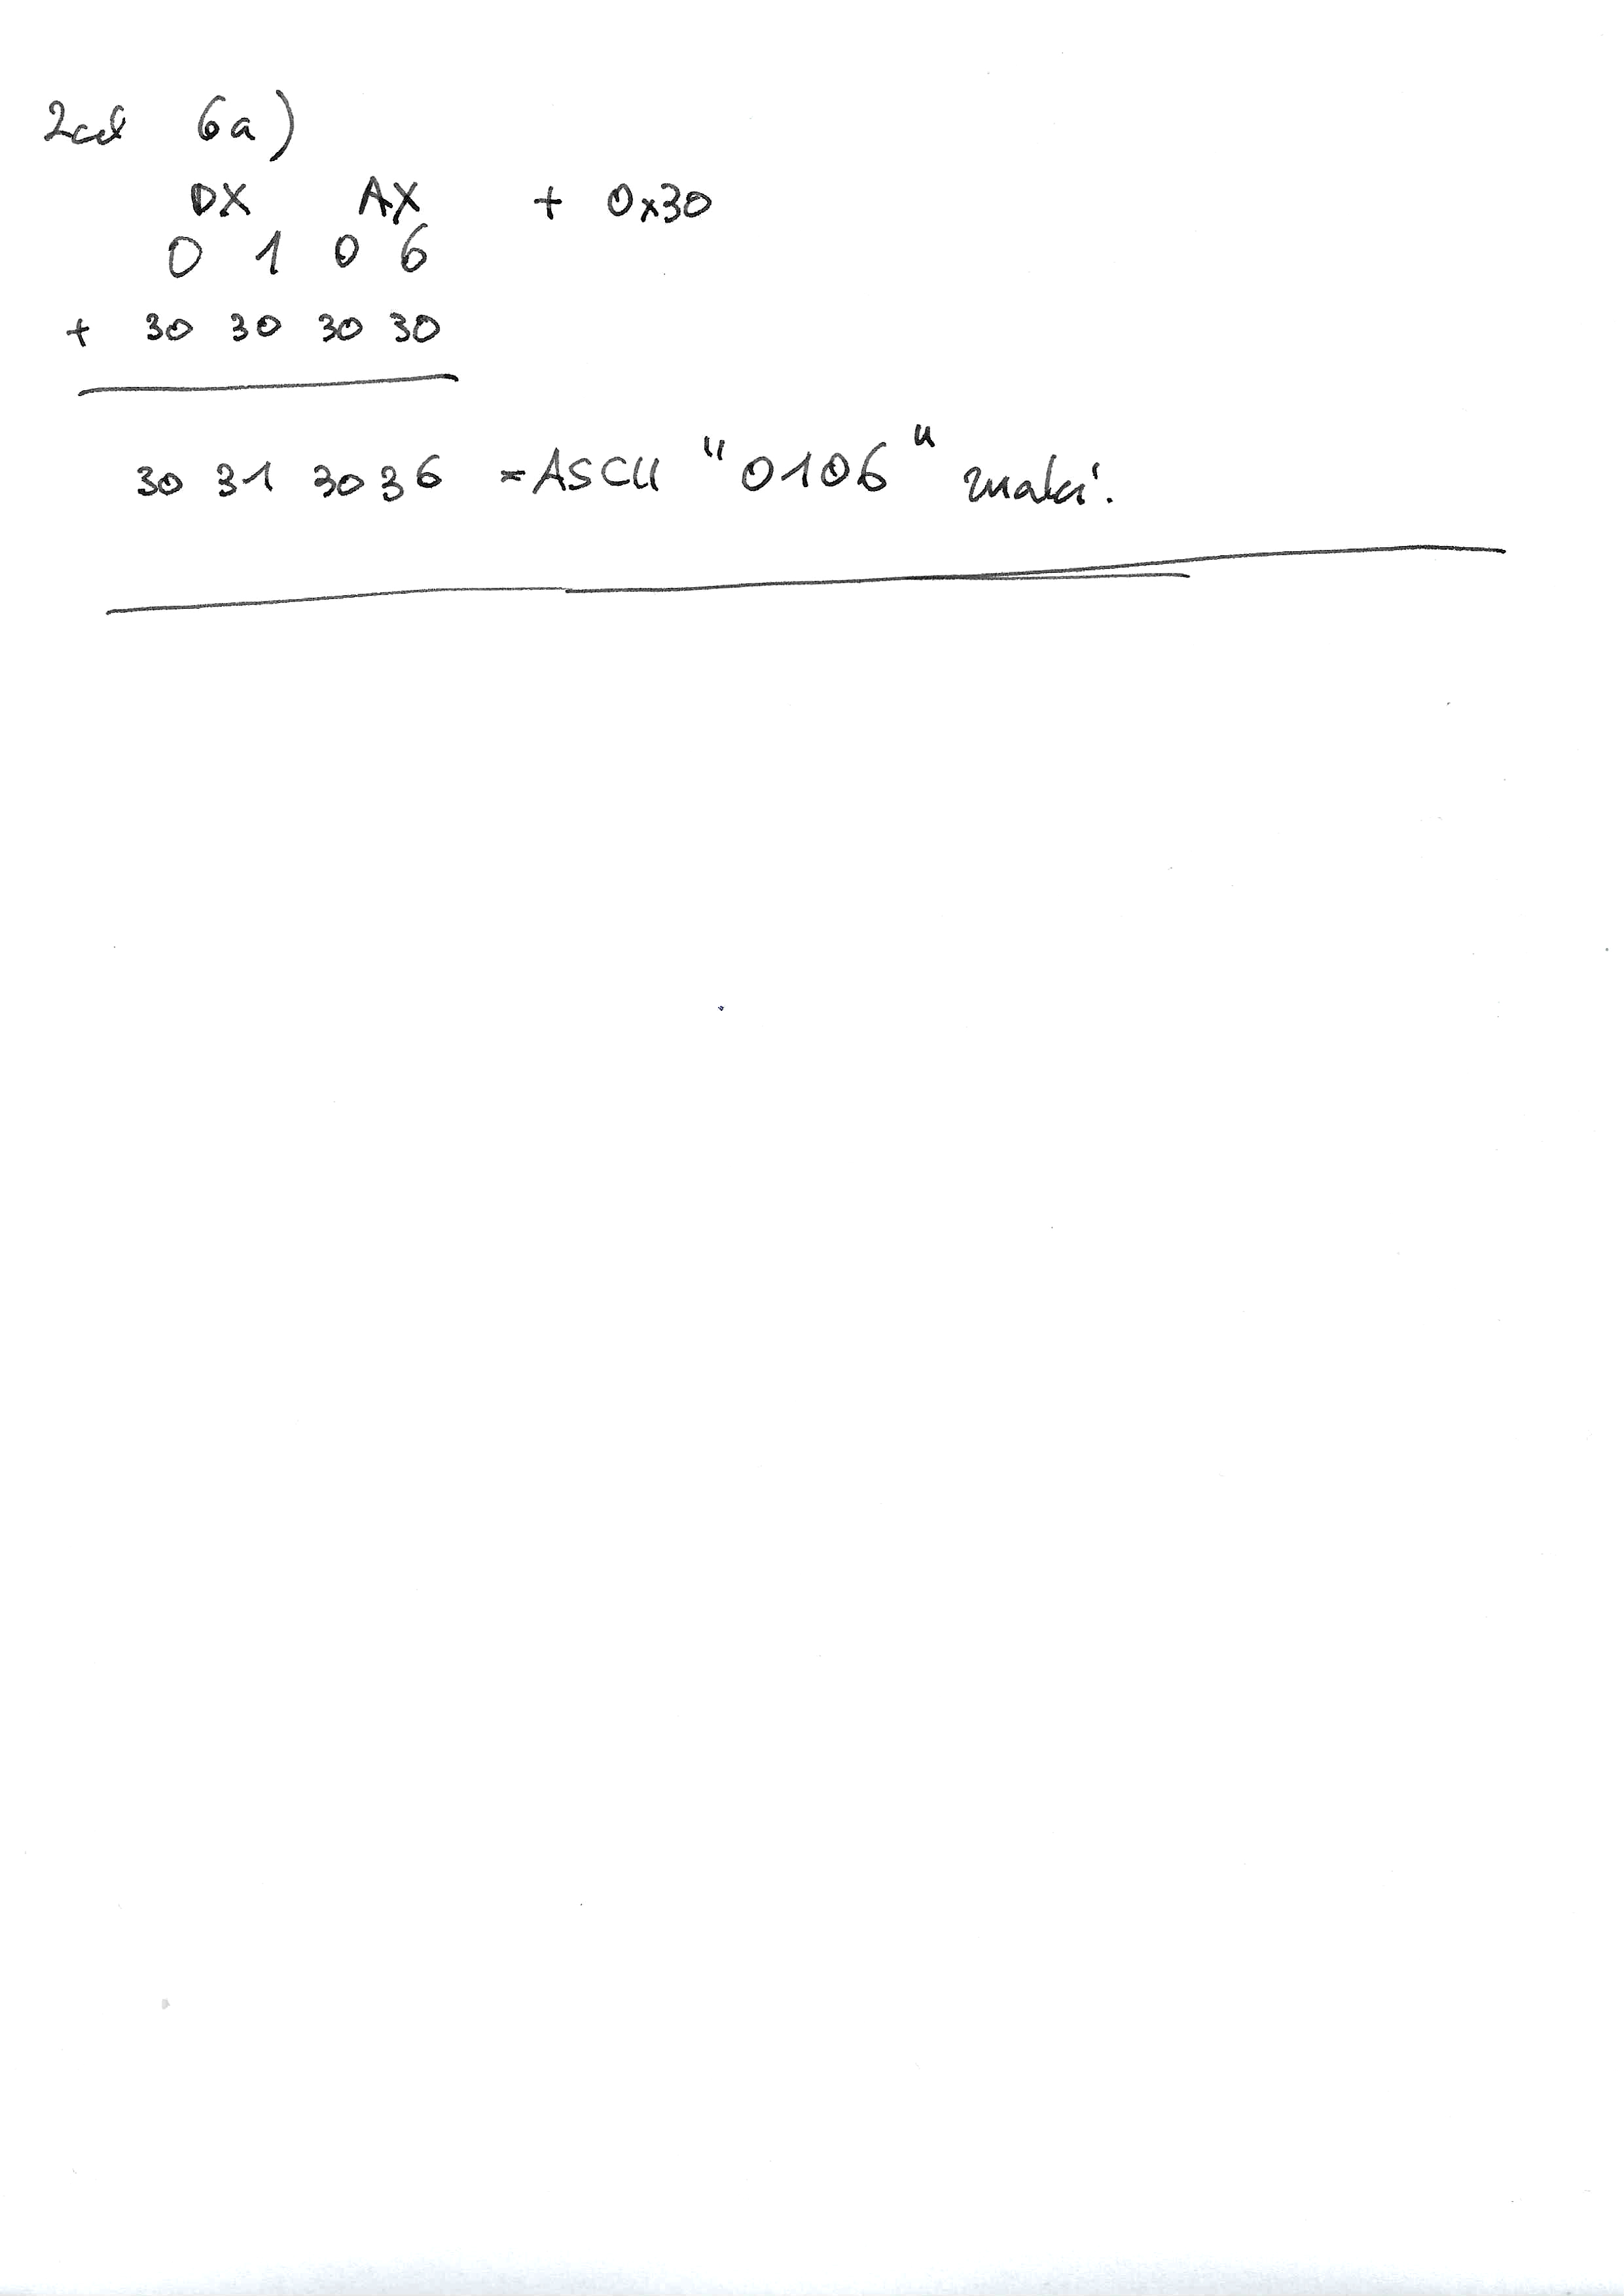 Zad 6a)
DX AX + 0x30
0 1 0 6
+ 30 30 30 30
30 31 30 36 = ASCII "0106" znaki.